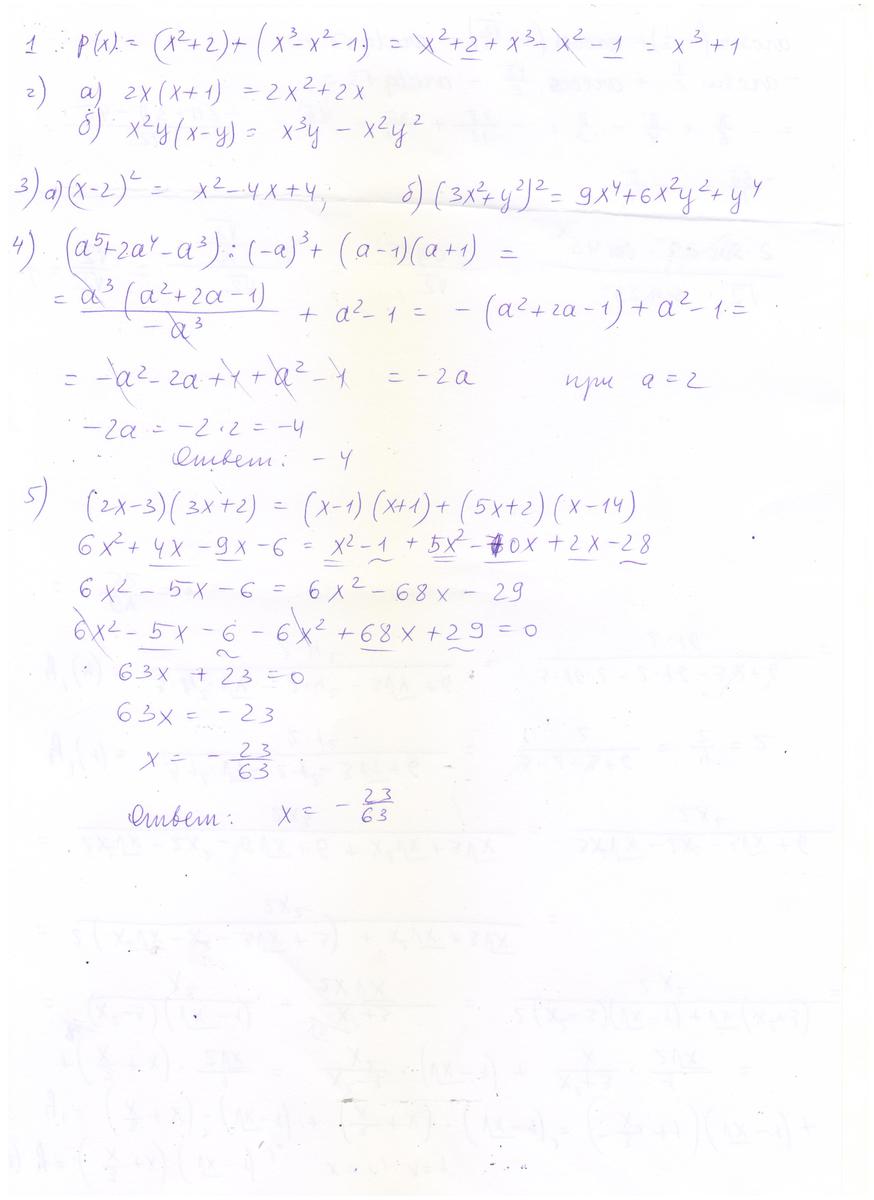 1. P(x) = (x²+2) + (x³-x²-1) = x²+2+x³-x²-1 = x³+1
2) а) 2x(x+1) = 2x²+2x
б) x²y(x-y) = x³y - x²y²
3) а) (x-2)² = x²-4x+4; б) (3x²+y²)² = 9x⁴+6x²y²+y⁴
4) (a⁵+2a⁴-a³) : (-a)³ + (a-1)(a+1) =
= a³(a²+2a-1) / -a³ + a²-1 = -(a²+2a-1)+a²-1 =
= -a²-2a+1+a²-1 = -2a при a=2
-2a = -2·2 = -4
Ответ: -4
5) (2x-3)(3x+2) = (x-1)(x+1)+(5x+2)(x-14)
6x²+4x-9x-6 = x²-1+5x²-70x+2x-28
6x²-5x-6 = 6x²-68x-29
6x²-5x-6-6x²+68x+29=0
63x+23=0
63x = -23
x = -23/63
Ответ: x = -23/63